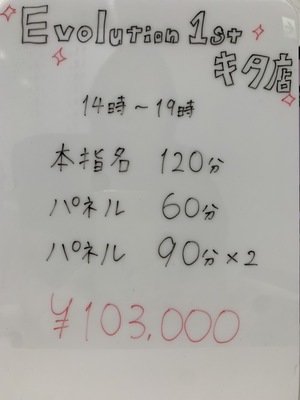 Evolution 1st
キタ店
14時〜19時
本指名 120分
パネル 60分
パネル 90分×2
¥103,000